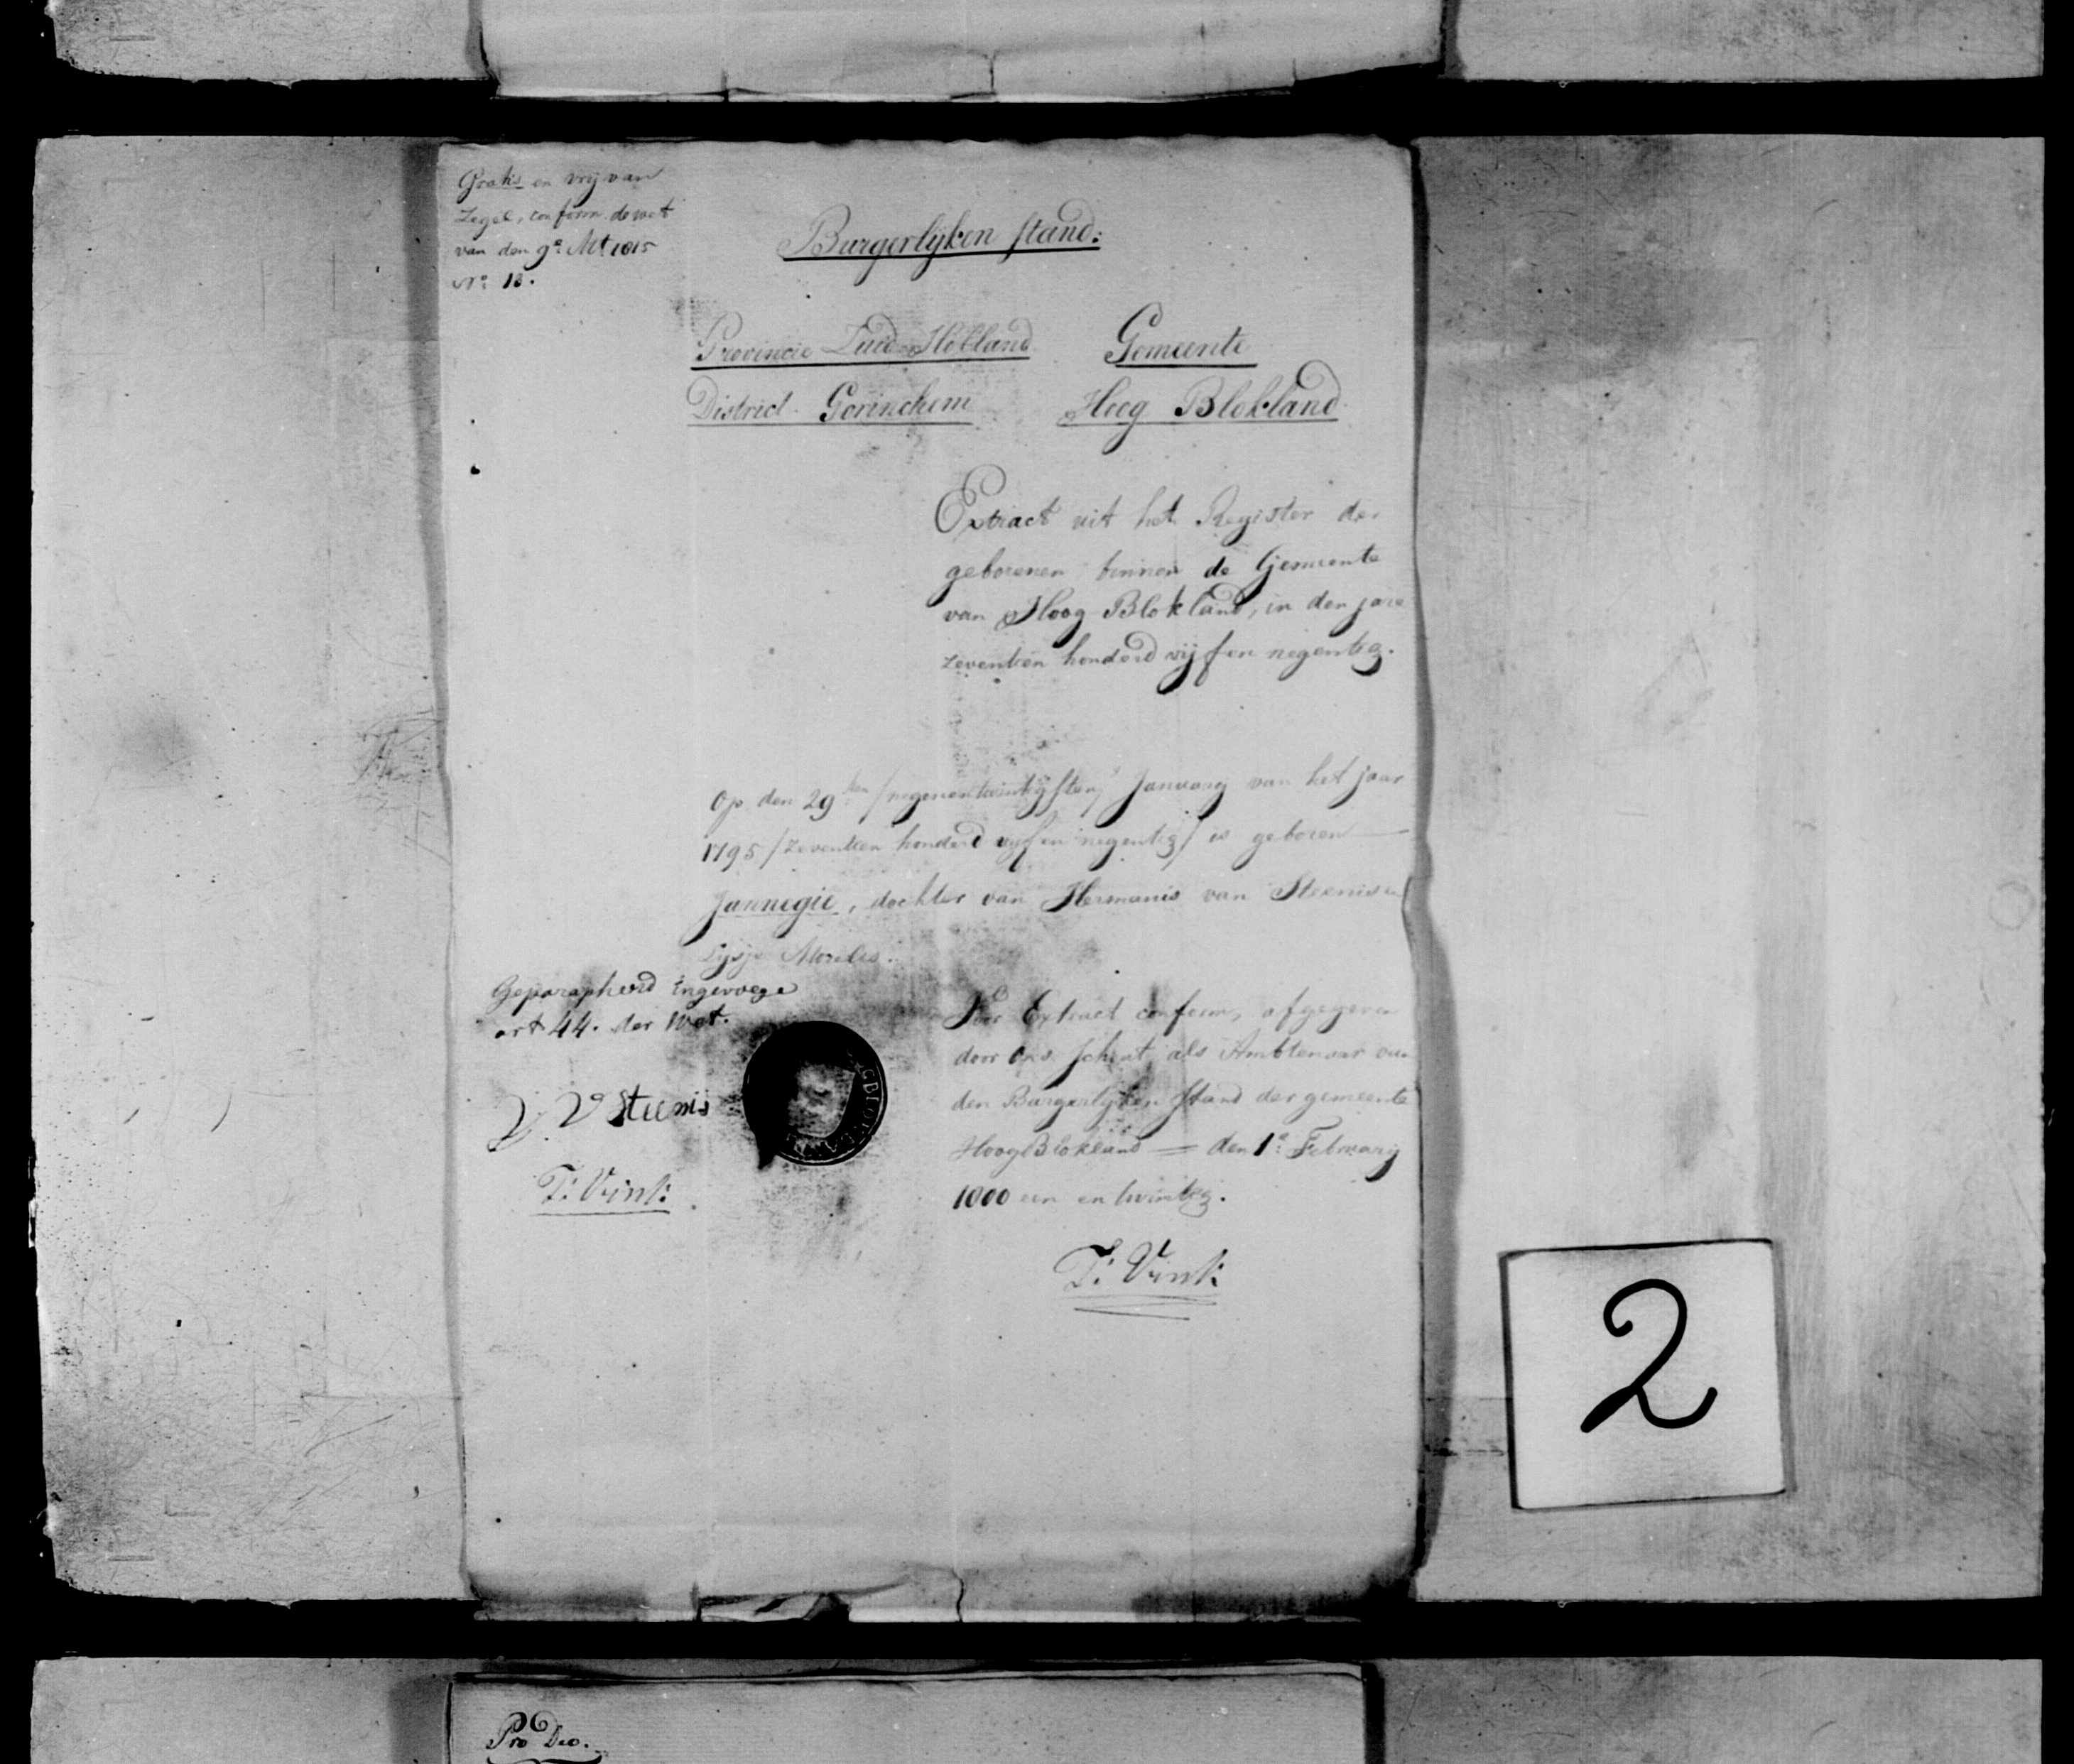 Gratis en vrij van
Zegel, conform de wet
van den 9e Mt 1815
No. 13.
Burgerlyken stand:
Provincie Zuid-Holland
Gemeente
District Gorinchem
Hoog Blokland
Extract uit het Register der
geborenen binnen de Gemeente
van Hoog Blokland, in den jare
zeventien honderd vijf en negentig.
Op den 29sten /negenentwintigsten/ January van het jaar
1795 /zeventien honderd vijf en negentig/ is geboren
Jannegie, dochter van Hermanis van Steenis en
Lijsje
Geparapheerd ingevoege
art 44. der Wet.
V. Steenis
T: Vink
BLOKLAND
Voor Extract conform, afgegeven
door ons Schout als Ambtenaar van
den Burgerlyken Stand der gemeente
Hoog Blokland = den 1e February
1800 een en twintig.
T: Vink
2
Pro Deo.